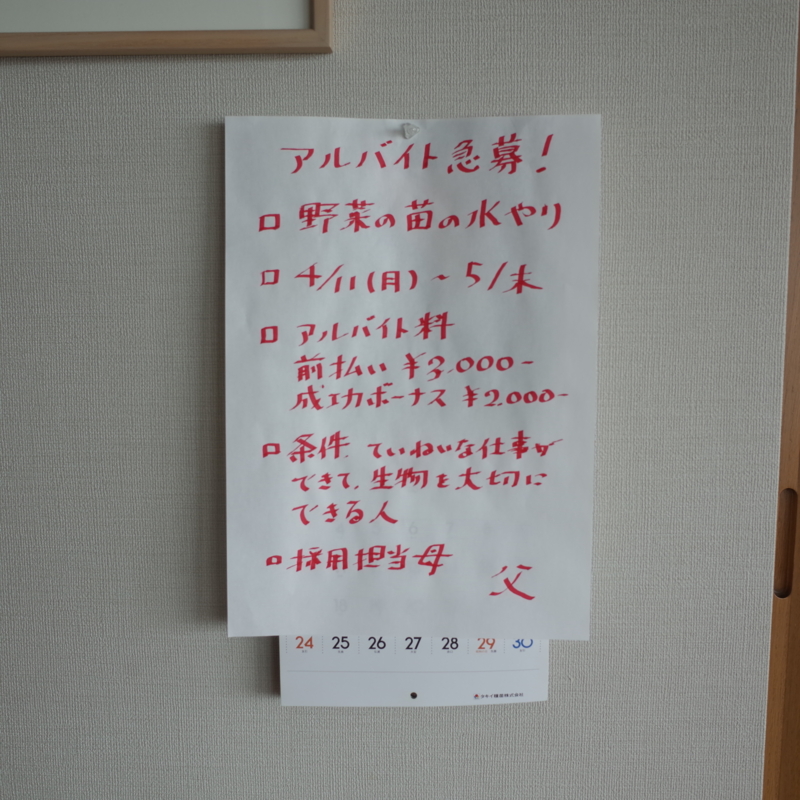 アルバイト急募!
□ 野菜の苗の水やり
□ 4/11(月)~5/末
□ アルバイト料
前払い ¥3.000-
成功ボーナス ¥2.000-
□ 条件 ていねいな仕事が
できて、生物を大切に
できる人
□ 採用担当母
父
24 25 26 27 28 29 30